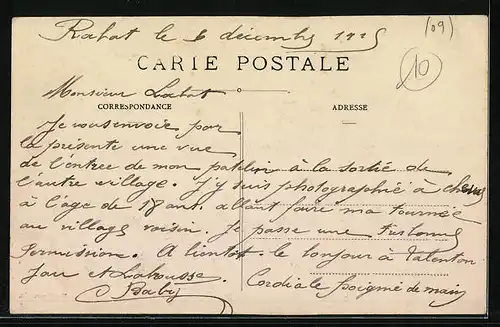 Rabat le 6 décembre 1925
(09)
10
CARTE POSTALE
Monsieur Labat
CORRESPONDANCE
ADRESSE
Je vous envoie par
la présente une vue
de l'entrée de mon patelin à la sortie de
l'autre village. J'y suis photographié à cheval
à l'âge de 18 ans. allant faire ma tournée
au village voisin. Je passe une
permission. A bientôt. le bonjour à Talenton
Jau et Lahousse.
Cordiale poignée de main
Baby